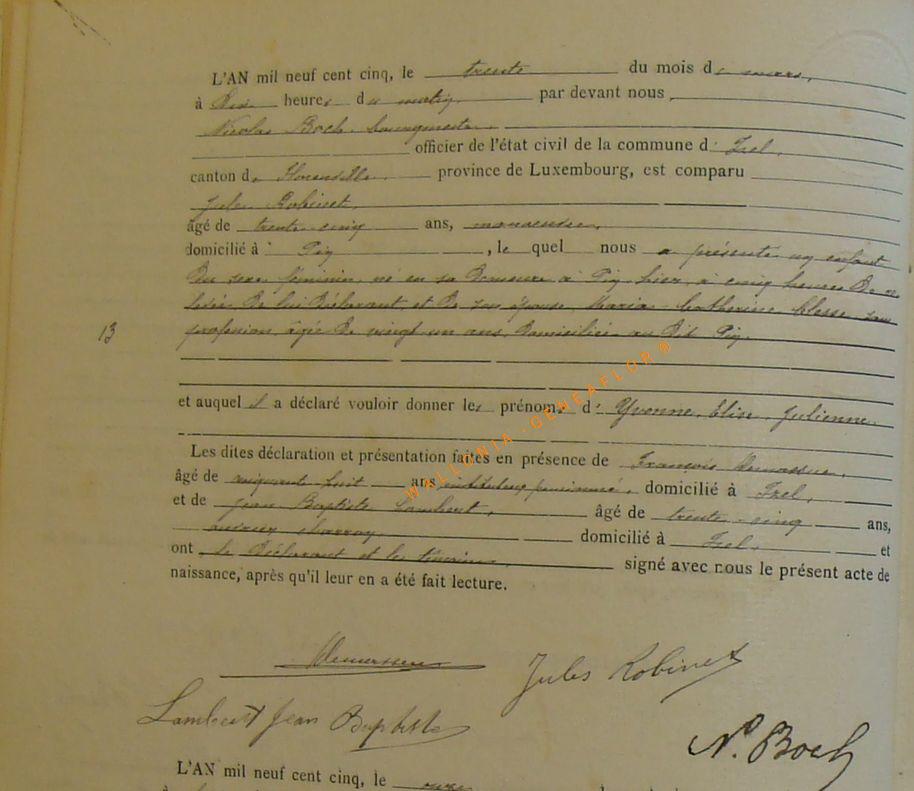 L'AN mil neuf cent cinq, le trente du mois de mars,
à dix heures du matin par devant nous
Nicolas Boch, bourgmestre
officier de l'état civil de la commune d' Izel,
canton de Florenville province de Luxembourg, est comparu
Jules Robinet,
âgé de trente-cinq ans, manoeuvre,
domicilié à Pin, le quel nous a présenté un enfant
du sexe féminin, né en sa demeure à Pin, hier, à cinq heures
de lui déclarant et de son épouse, Maria Catherine sans
13 profession, âgée de vingt un ans, domiciliée au dit Pin.
et auquel il a déclaré vouloir donner les prénoms d' Yvonne, Elise, Julienne
Les dites déclaration et présentation faites en présence de François
âgé de cinquante huit ans instituteur pensionné, domicilié à Izel,
et de Jean Baptiste Lambert, âgé de trente-cinq ans,
domicilié à Izel, et
ont le déclarant et les témoins signé avec nous le présent acte de
naissance, après qu'il leur en a été fait lecture.
WALLONIA-GENEAFLOR®
Jules Robinet
Lambert Jean Baptiste
N. Boch
L'AN mil neuf cent cinq, le onze